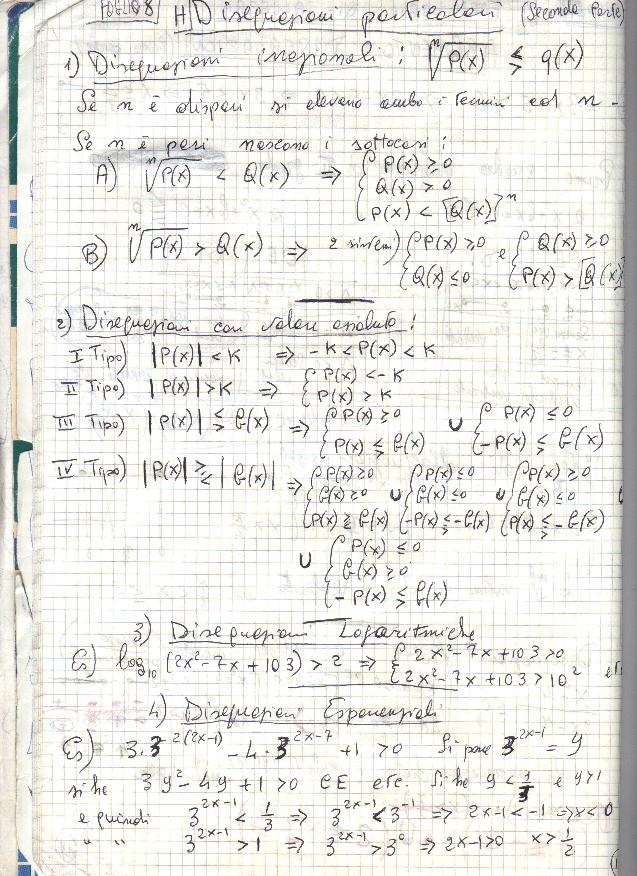 FOGLIO 8 H) Disequazioni particolari (Seconda Parte)
1) Disequazioni irrazionali: ⁿ√P(x) ≶ q(x)
Se n è dispari si elevano ambo i termini ad n -
Se n è pari nascono i sottocasi:
A) ⁿ√P(x) < Q(x) ⇒ { P(x) ≥ 0
Q(x) > 0
P(x) < [Q(x)]ⁿ
B) ⁿ√P(x) > Q(x) ⇒ 2 sistemi) { P(x) ≥ 0 e { Q(x) ≥ 0
{ Q(x) ≤ 0 { P(x) > [Q(x)]
2) Disequazioni con valore assoluto:
I Tipo) |P(x)| < K ⇒ -K < P(x) < K
II Tipo) |P(x)| > K ⇒ { P(x) < -K
P(x) > K
III Tipo) |P(x)| ≶ G(x) ⇒ { P(x) ≥ 0 ∪ { P(x) ≤ 0
{ P(x) ≶ G(x) { -P(x) ≶ G(x)
IV Tipo) |P(x)| ≷ |G(x)| ⇒ { P(x) ≥ 0 ∪ { P(x) ≤ 0 ∪ { P(x) ≥ 0 ∪
G(x) ≥ 0 G(x) ≤ 0 G(x) ≤ 0
P(x) ≷ G(x) -P(x) ≶ -G(x) P(x) ≶ -G(x)
∪ { P(x) ≤ 0
G(x) ≥ 0
-P(x) ≶ G(x)
3) Disequazioni Logaritmiche
Es) log₁₀ (2x²-7x+103) > 2 ⇒ { 2x²-7x+103 > 0
{ 2x²-7x+103 > 10² etc
4) Disequazioni Esponenziali
Es) 3·3^2(2x-1) - 4·3^2x-7 + 1 > 0 Si pone 3^2x-1 = y
si ha 3y² - 4y + 1 > 0 CE etc. Si ha y < 1/3 e y > 1
e quindi 3^2x-1 < 1/3 ⇒ 3^2x-1 < 3^-1 ⇒ 2x-1 < -1 ⇒ x < 0
" " 3^2x-1 > 1 ⇒ 3^2x-1 > 3^0 ⇒ 2x-1 > 0 x > 1/2